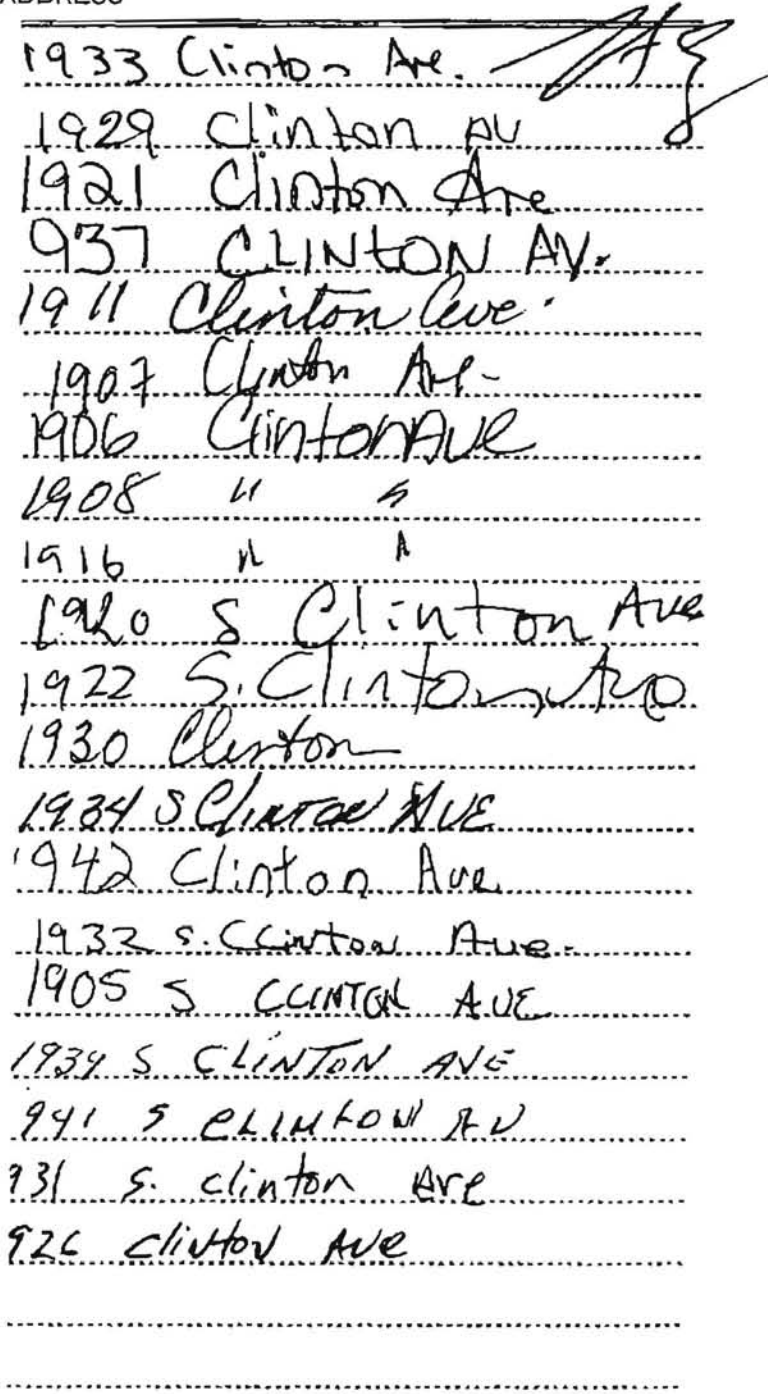 ADDRESS
1933 Clinton Ave.
1929 Clinton AV
1921 Clinton Ave
937 CLINTON AV.
1911 Clinton Ave.
1907 Clinton Ave-
1906 Clinton Ave
1908 " "
1916 " "
1920 S Clinton Ave
1922 S. Clinton Ave
1930 Clinton
1934 S Clinton AVE
1942 Clinton Ave
1932 S. Clinton Ave.
1905 S CLINTON AVE
1939 S CLINTON AVE
941 S CLINTON AV
931 S. clinton Ave
926 clinton Ave